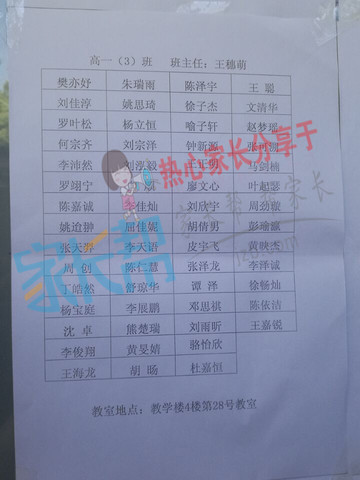 高一（3）班 班主任：王穗萌
樊亦妤 朱瑞雨 陈泽宇 王聪
刘佳淳 姚思琦 徐子杰 文清华
罗叶松 杨立恒 喻子轩 赵梦瑶
何宗齐 刘宗泽 钟新源
李沛然 刘泓毅 王正明 马剑楠
罗翊宁 廖文心 叶超瑟
陈嘉诚 李佳灿 刘欣宇 周劲骏
姚迨翀 屈佳妮 胡倩男 彭瑜瀛
张天羿 李天语 皮宇飞 黄映杰
周创 陈仁慧 张泽龙 李泽诚
丁皓然 舒琼华 谭泽 徐畅灿
杨宝庭 李展鹏 邓思祺 陈依洁
沈卓 熊楚瑞 刘雨昕 王嘉锐
李俊翔 黄旻婧 骆怡欣
王海龙 胡旸 杜嘉恒
教室地点：教学楼4楼第28号教室
热心家长分享于
家长帮